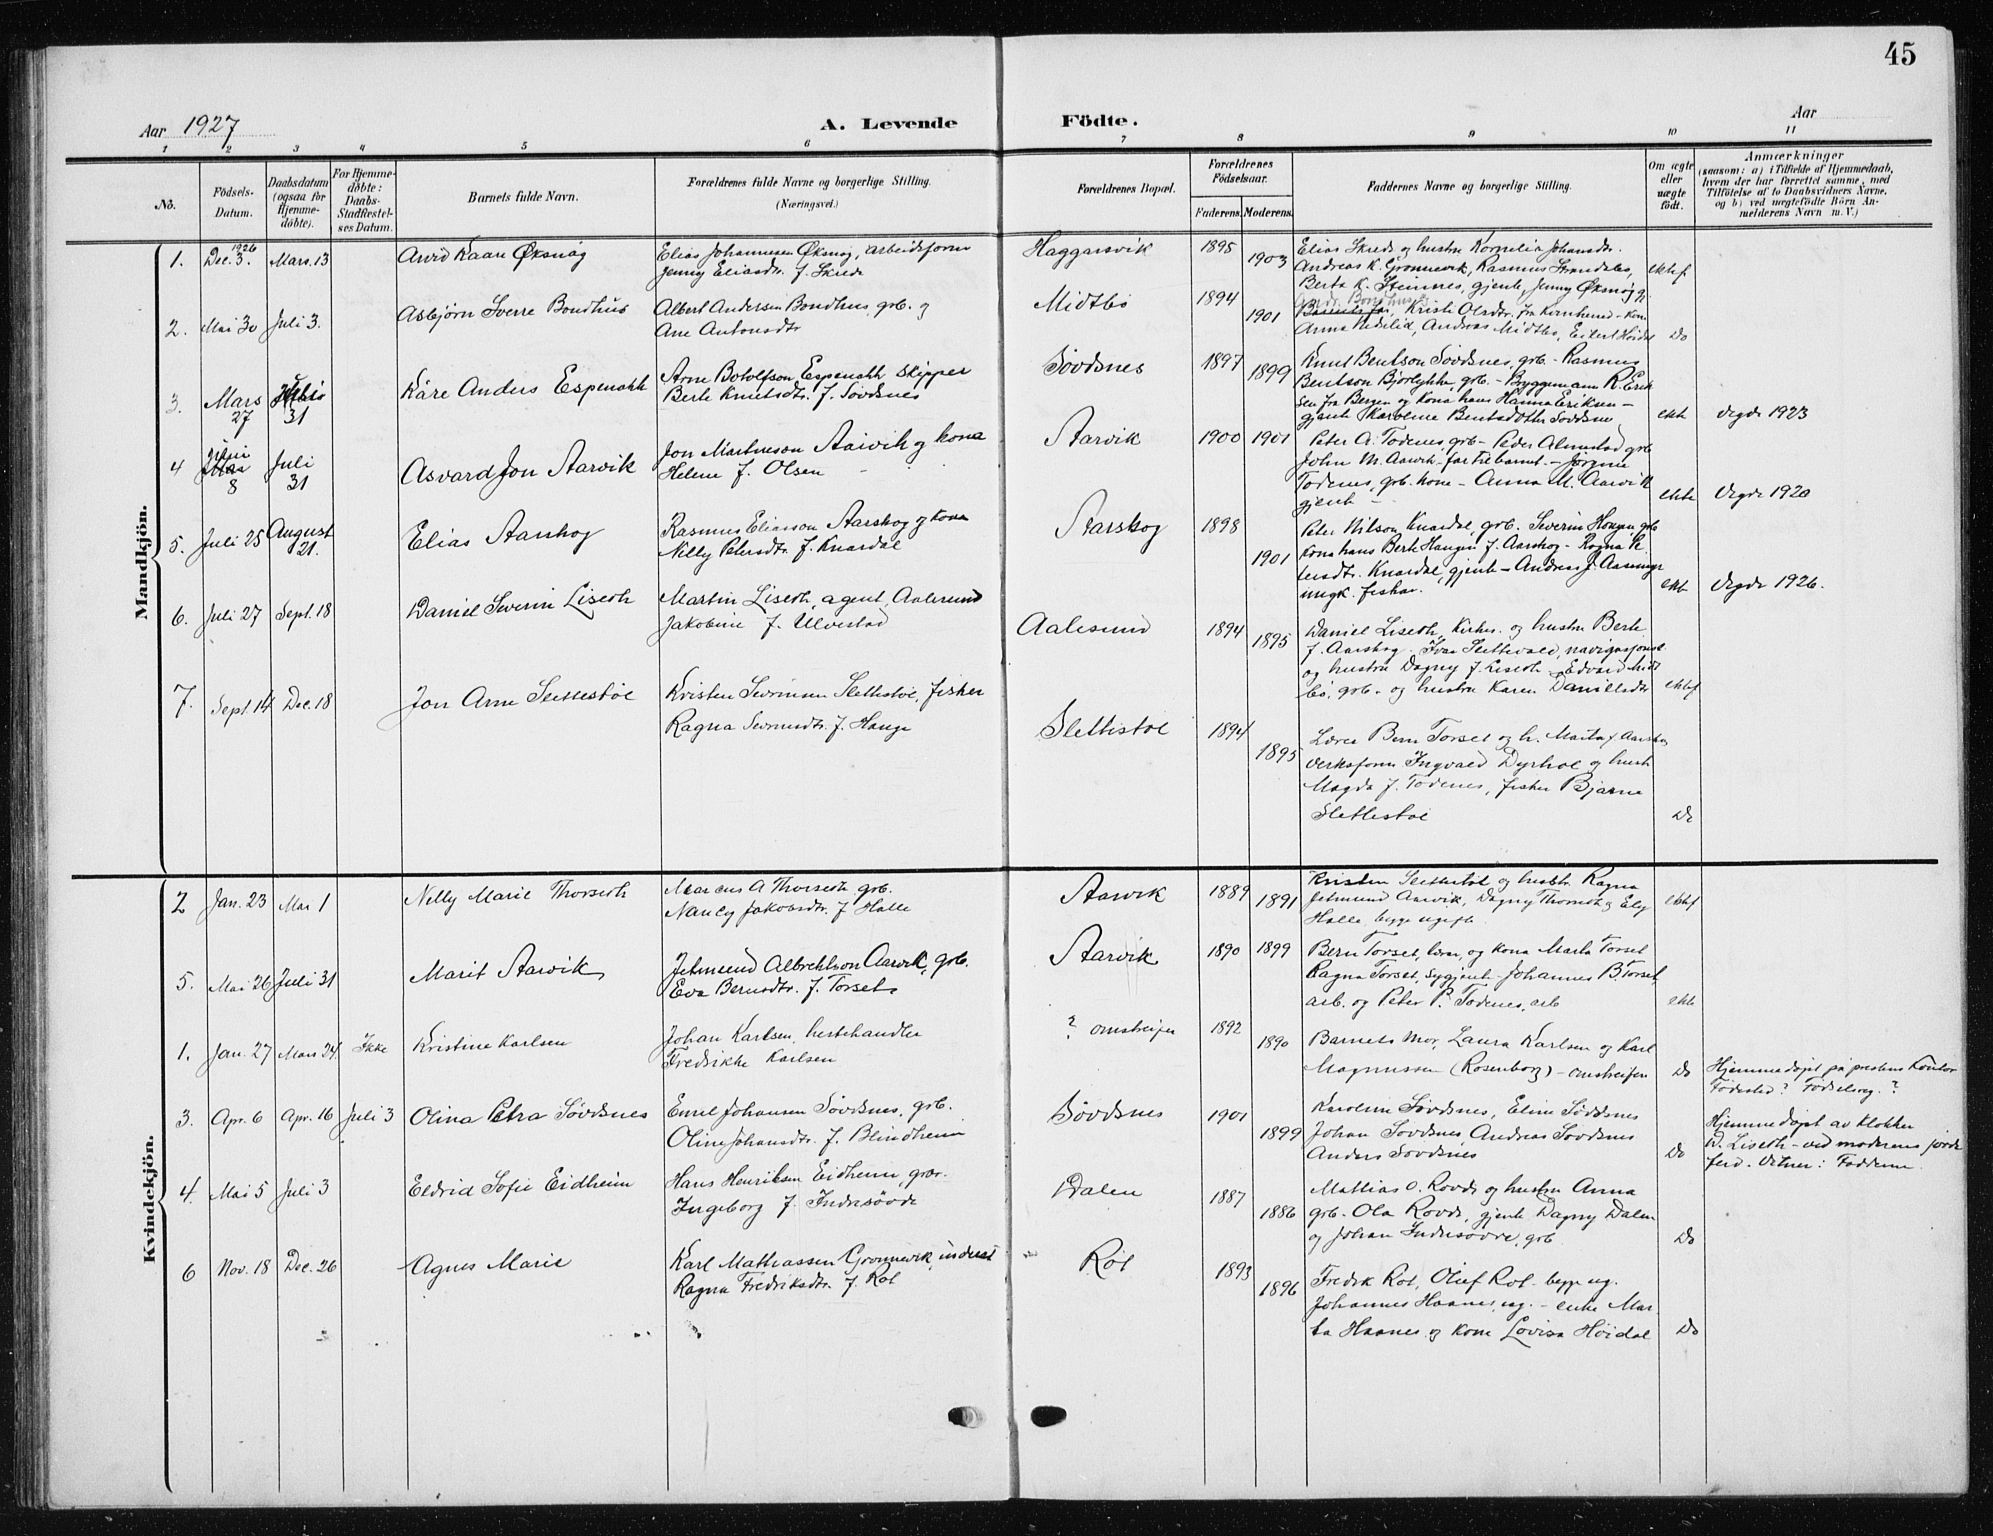 45
Aar 1927
A. Levende Födte.
Aar
1 2 3 4 5 6 7 8 9 10 11
No.
Födsels-Datum.
Daabsdatum (ogsaa for Hjemme-døbte).
For Hjemme-døbte: Daabs-Stadfæstel-ses Datum.
Barnets fulde Navn.
Forældrenes fulde Navne og borgerlige Stilling.
(Næringsvei.)
Forældrenes Bopæl.
Forældrenes Födselsaar.
Faderens. Moderens.
Faddernes Navne og borgerlige Stilling.
Om ægte eller uægte födt.
Anmærkninger
(saasom: a) i Tilfælde af Hjemmedaab, hvem der har forrettet samme, med Tilföielse af to Daabsvidners Navne, og b) ved uægtefödte Börn An-melderens Navn m. V.)
Mandkjön.
1. 1926 Dec. 3. Mars. 13 Arvid Kaare Øksnøg
Elias Johannesen Øksnøg, arbeidsform
Jenny Eliasdr. f. Skrede
Haggarsvik 1895 1903
Elias Skrede og hustru Kornelia Johansdr.
Andreas K. Grønnevik, Rasmus
Berta K. Steinnes, gjente, Jenny Øksnøg
ektef
2. Mai 30 Juli 3. Asbjörn Sverre Bondhus
Albert Andersen Bondhus grb. og
Ane Antonsdtr
Midtbø 1894 1901
Barnets far, Kristi Olsdtr.
Anna Andreas Midtbø, Eilert
Do
3. Mars 27 31 Kåre Anders Espenakk
Arne Botolfson Espenakk skipper
Berte Knutsdtr. f. Søvdsnes
Søvdsnes 1897 1899
Knut Bentson Søvdsnes, grb. - Rasmus
Bentson Bjørlykke, grb. - Bryggemann R. Erik
sen fra Bergen og kona hans Hanna Eriksen -
gjente Karoline Bentsdotter Søvdsnes
ekte Vigde 1923
4 8 Juli 31 Asvard Jon Aarvik
Jon Martineson Aarvik og kona
Helene f. Olsen
Aarvik 1900 1901
Peter A. Todenes grb - Peder Almestad grb
John M. Aarvik - far til barnet. - Jørgine
Todenes, grb. kone - Anna M. Aarvik
gjente -
ekte Vigde 1920
5. Juli 25 August 21. Elias Aarskog
Rasmus Eliasson Aarskog og kona
Nelly Petersdtr. f. Knardal
Aarskog 1898 1901
Peter Nilson Knardal, grb. Severin Haugen grb
kona hans Berte Haugen f. Aarskog - Ragna Pe
tersdtr. Knardal, gjente - Andreas J.
ungk. fiskar.
ekte Vigde 1926.
6. Juli 27 Sept. 18 Daniel Severin Liseth
Martin Liseth, agent, Aalesund
Jakobine f. Ulvestad
Aalesund 1894 1895
Daniel Liseth, kirkes. og hustru Berte
f. Aarskog. Ivar Slettevold,
og hustru Dagny f. Liseth - Edvard Midt
bø, grb - og hustru Karen Danielsdtr
ektef
7. Sept. 14 Dec. 18 Jon Arne Slettestøl
Kristen Sevrinsen Slettestøl, fisker
Ragna Sevrinsdtr. f. Hauge
Slettestøl 1894 1895
Lærer Bern Torset og h. Marta f Aarskog
verksform Ingvald Dyrhol og hustr
Magda f. Todenes, fisker Bjarne
Slettestøl
Do
Kvindekjön.
2 Jan. 23 Mai 1 Nelly Marie Thorseth
Marcus A Thorseth grb.
Nancy Jakobsdtr. f Halle
Aarvik 1889 1891
Kristen Slettestøl og hustr. Ragna
Jetmund Aarvik, Dagny Thorseth og Ely
Halle begge ugifte
ektef
5. Mai 26 Juli 31 Marit Aarvik
Jetmund Albrektson Aarvik, grb.
Eva Bernsdtr. f. Torset
Aarvik 1890 1899
Bern Torset, lærer, og kona Marta Torset
Ragna Torset, sygjente - Johannes B. Torset,
arb. og Peter P. Todenes, arb
ekte
1. Jan. 27 Mars 24 Ikke Kristine Karlsen
Johan Karlsen, hestehandler
Fredrikke Karlsen
? omstreifer 1892 1890
Barnets Mor, Laura Karlsen og Karl
Magnussen (Rosenborg) - omstreifere
Do Hjemmedøpt på prestens kontor
Fødested? Fødselsreg.?
3. Apr. 6 Apr. 16 Juli 3 Olina Petra Søvdsnes
Emil Johansen Søvdsnes, grb.
Oline Johansdtr. f. Blindheim
Søvdsnes 1901 1899
Karoline Søvdsnes, Eline Søvdsnes
Johan Søvdsnes, Andreas Søvdsnes
Anders Søvdsnes
Do Hjemmedøpt av klokker
D. Liseth - ved moderens jorde
ferd. Vitner: Fadderne.
4. Mai 5 Juli 3 Eldrid Sofie Eidheim
Hans Henriksen Eidheim,
Ingeborg f. Indresøvde
Dalen 1887 1886
Mattias O. Rovde og hustru Anna
grb. Ola Rovde, gjente Dagny Dalen
og Johan Indresøvde, grb
Do
6 Nov. 18 Dec. 26 Agnes Marie
Karl Mathiassen Grønnevik, inderst
Ragna Fredriksdtr. f. Røt
Røt 1893 1896
Fredrik Røt, Oluf Røt - begge ug.
Johannes Haanes, ug. - enke Mar
ta Haanes og kone Lovisa Høidal
Do